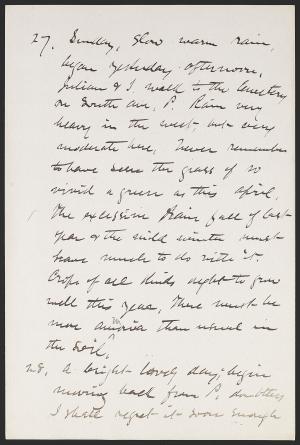 27. Sunday, slow warm rain,
began yesterday afternoon,
Julian & I walk to the Cemetery
on South ave, P. Rain very
heavy in the west, but very
moderate here, Never remember
to have seen the grass of so
vivid a green as this April,
The excessive rain fall of last
year & the mild winter must
have much to do with it.
Crops of all kinds ought to grow
well this year, There must be
more ammonia than usual in
the soil,
28, A bright lovely day; begin
moving back from P. doubtless
I shall regret it soon enough